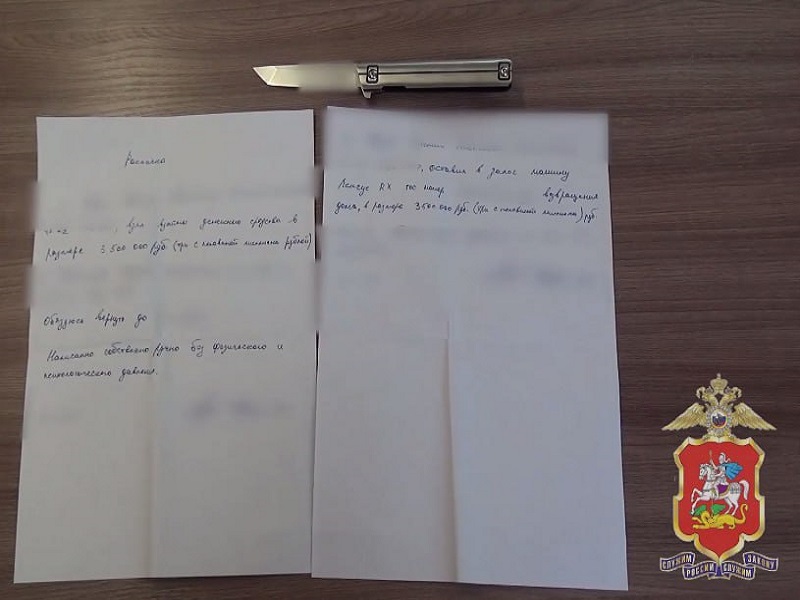 Расписка
, взял взаймы денежные средства в
размере 3 500 000 руб (три с половиной миллиона рублей)
Обязуюсь вернуть до
Написанно собственно ручно без физического и
психологического давления.
, оставил в залог машину
Лексус RX гос номер возвращения
долга, в размере 3 500 000 руб. (три с половиной миллиона) руб.
СЛУЖИМ РОССИИ СЛУЖИМ ЗАКОНУ